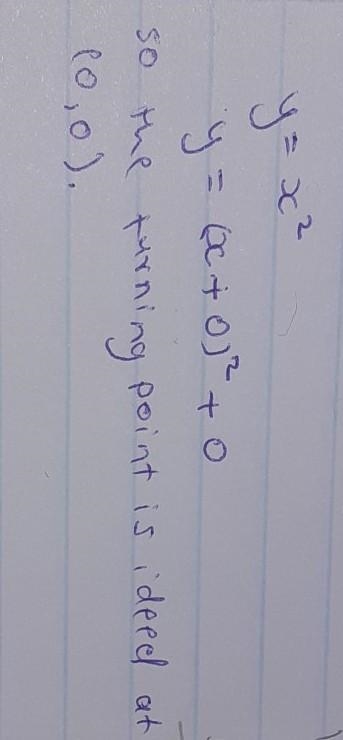 y = x²
y = (x + 0)² + 0
so the turning point is ideed at
(0,0).